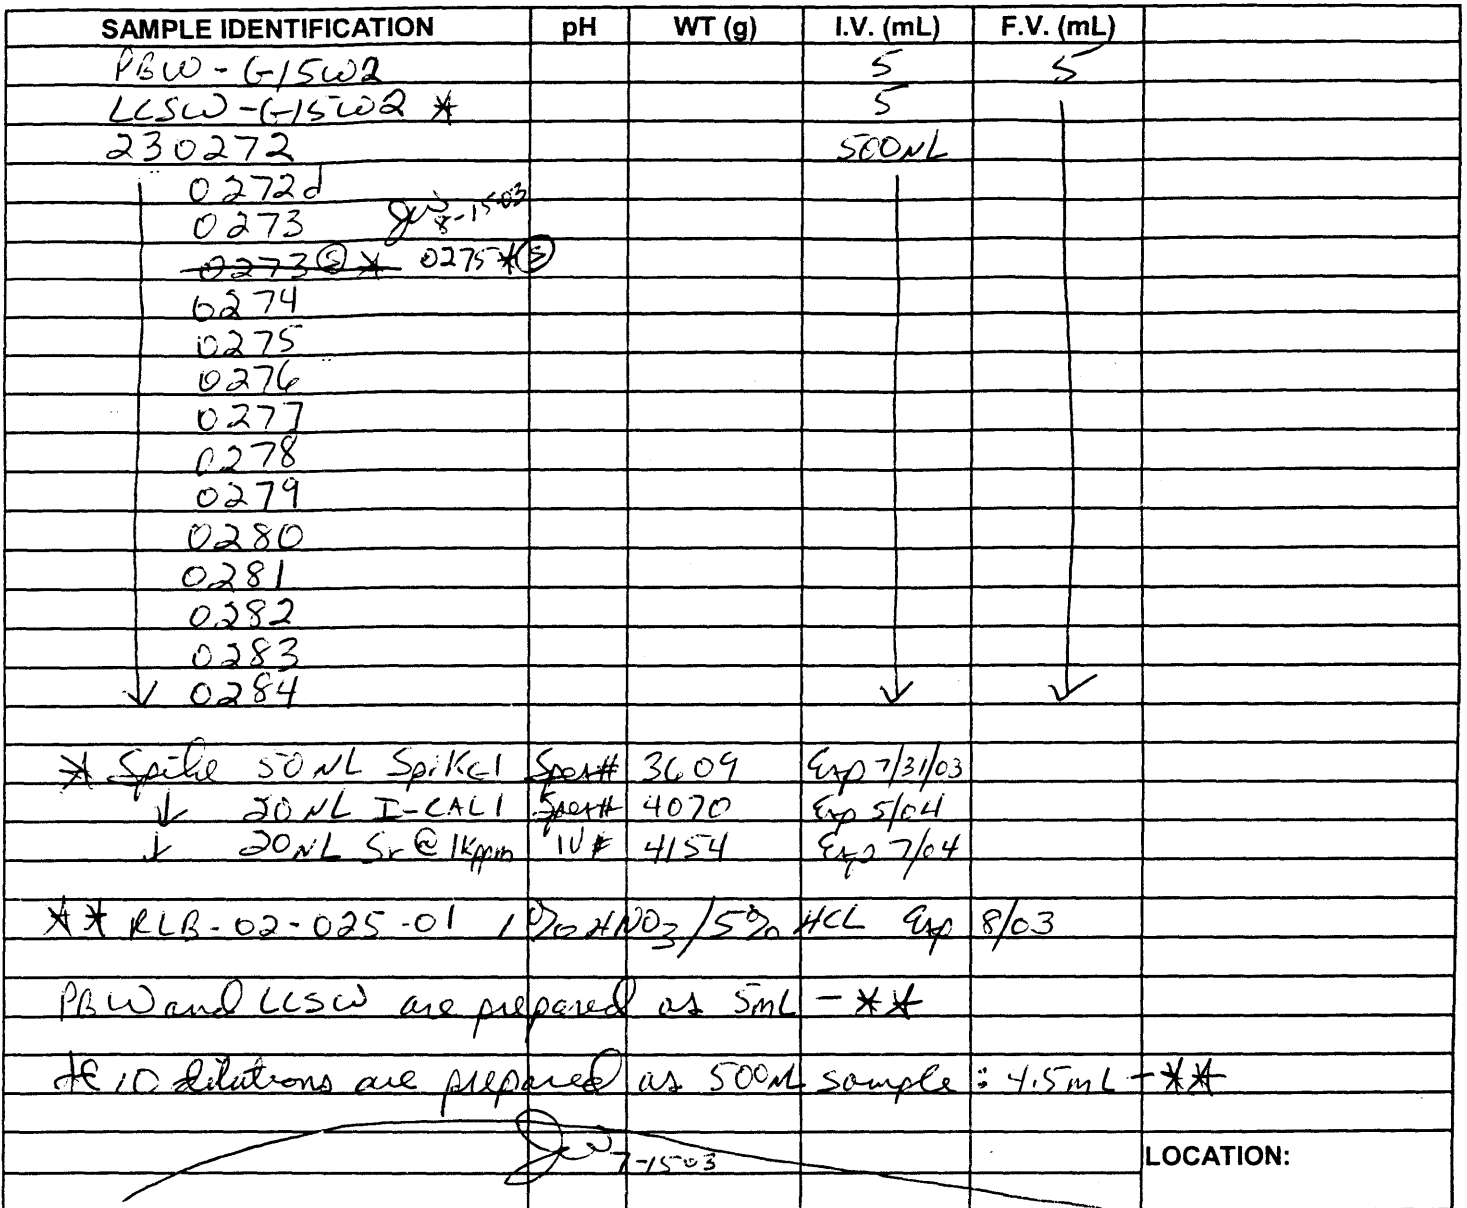 SAMPLE IDENTIFICATION pH WT (g) I.V. (mL) F.V. (mL)
PBW - G15W2 5 5
LCSW - G15W2 * 5
230272 500µL
0272d
0273 JW 8-15-03
0273 Ⓢ * 0275 * Ⓢ
0274
0275
0276
0277
0278
0279
0280
0281
0282
0283
0284
* Spike 50µL Spike1 Spex# 3609 Exp 7/31/03
↓ 20µL I-CAL1 Spex# 4070 Exp 5/04
↓ 20µL Sr @ 1Kppm IV# 4154 Exp 7/04
** RLB-02-025-01 1% HNO3/5% HCL Exp 8/03
PBW and LCSW are prepared as 5mL - **
10 dilutions are prepared as 500µL sample : 4.5mL - **
JW 7-15-03
LOCATION: